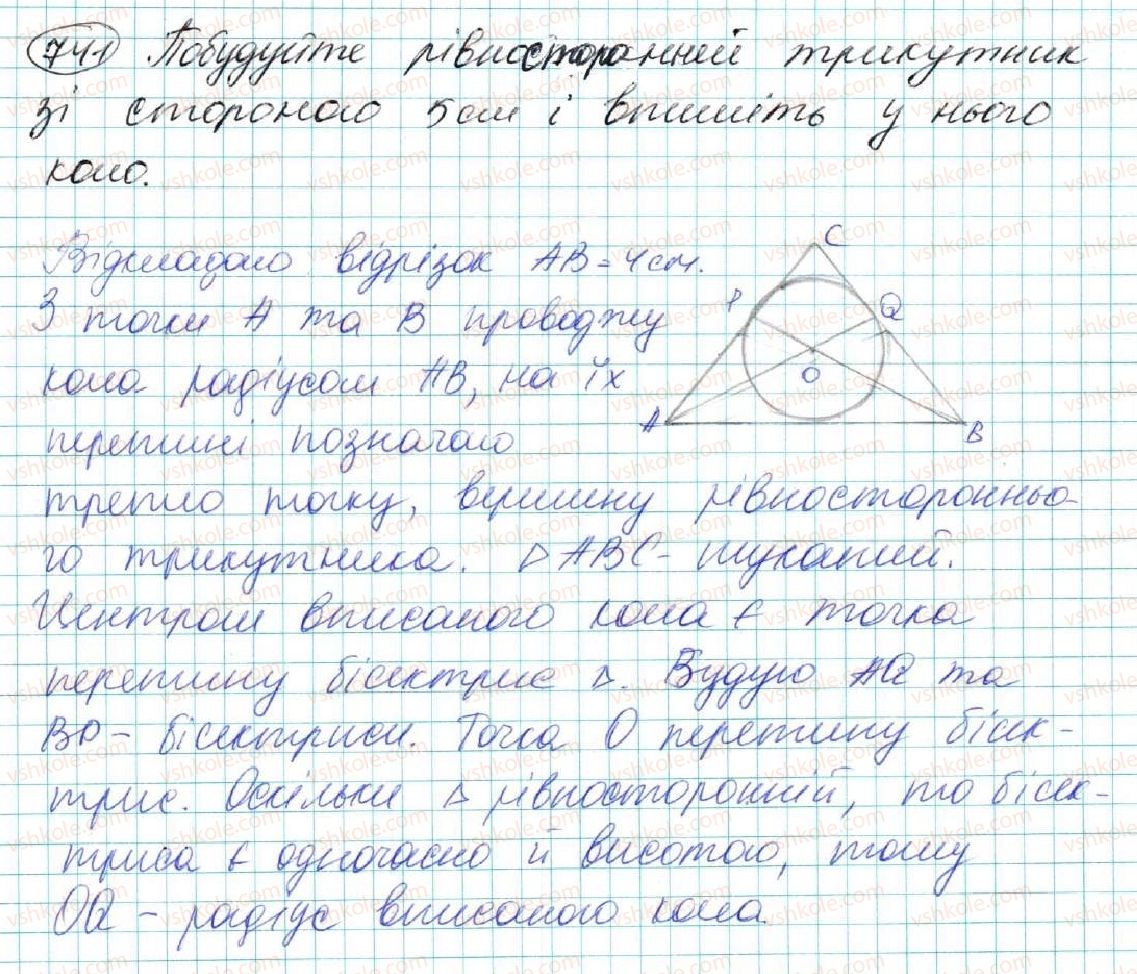 741 Побудуйте рівносторонній трикутник
зі стороною 5 см і впишіть у нього
коло.
Відкладаю відрізок AB = 4 см.
З точки A та B проводжу
кола радіусом AB, на їх
перетині позначаю
третю точку, вершину рівносторонньо-
го трикутника. △ ABC - шуканий.
Центром вписаного кола є точка
перетину бісектрис △. Будую AQ та
BP - бісектриси. Точка O перетину бісек-
трис. Оскільки △ рівносторонній, то бісек-
триса є одночасно й висотою, тому
OQ - радіус вписаного кола.
C
P
Q
O
A
B
vshkole.com